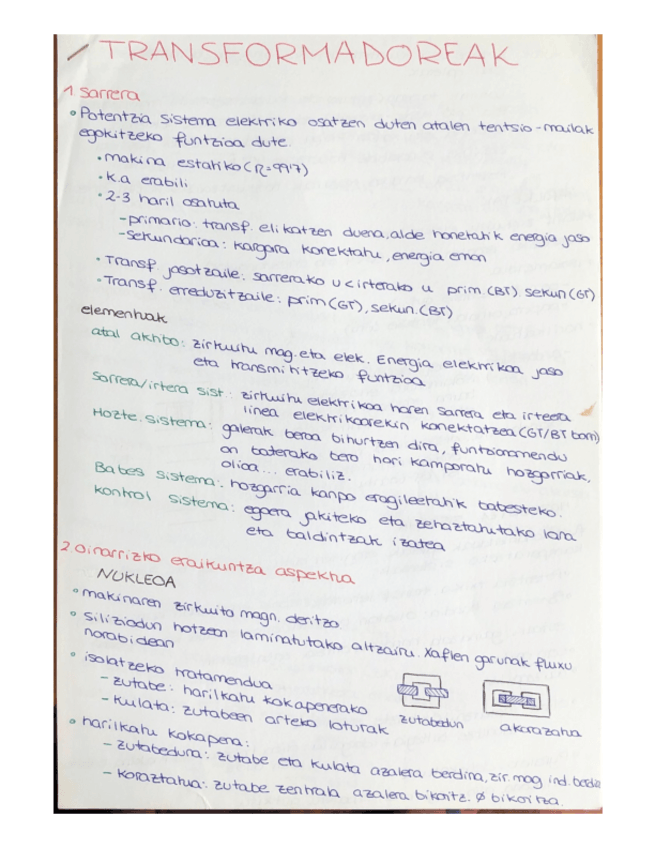 TRANSFORMADOREAK
1 Sarrera
Potentzia sistema elektriko osatzen duten atalen tentsio-mailak
egokitzeko funtzioa dute.
• makina estatiko (η=99'7)
• k.a erabili
• 2-3 haril osatuta
- primario: transf. elikatzen duena, alde honetatik energia jaso
- sekundarioa: kargara konektatu, energia eman
• Transf jasotzaile: sarrerako u < irterako u prim.(BT), sekun(GT)
• Transf. erreduzitzaile: prim(GT), sekun.(BT)
elementuak
atal aktibo: zirkuitu mag. eta elek. Energia elektrikoa jaso
eta transmititzeko funtzioa
Sarrera/irtera sist.: zirkuitu elektrikoa horen sarrera eta irteera
linea elektrikoarekin konektatzea (GT/BT born)
Hozte. sistema: galerak beroa bihurtzen dira, funtzionamendu
on baterako bero hori kamporatu hozgarriak,
olioa... erabiliz.
Babes sistema: hozgarria kanpo eragileetatik babesteko.
kontrol sistema: egoera jakiteko eta zehaztatutako lana
eta baldintzak izatea
2. Oinarrizko eraikuntza aspektua
NUKLEOA
makinaren zirkuito magn. deritzo
Siliziodun hotzean laminatutako altzairu. Xaflen garunak fluxu
norabidean
isolatzeko tratamendua
- zutabe: harilkatu kokapenerako
- kulata: zutabeen arteko loturak
zutabedun
akorazatua
harilkatu kokapena:
- zutabeduna: zutabe eta kulata azalera berdina, zir. mag ind. berdia
- koraztatua: zutabe zentrala azalera bikoitz. Ø bikoitza.